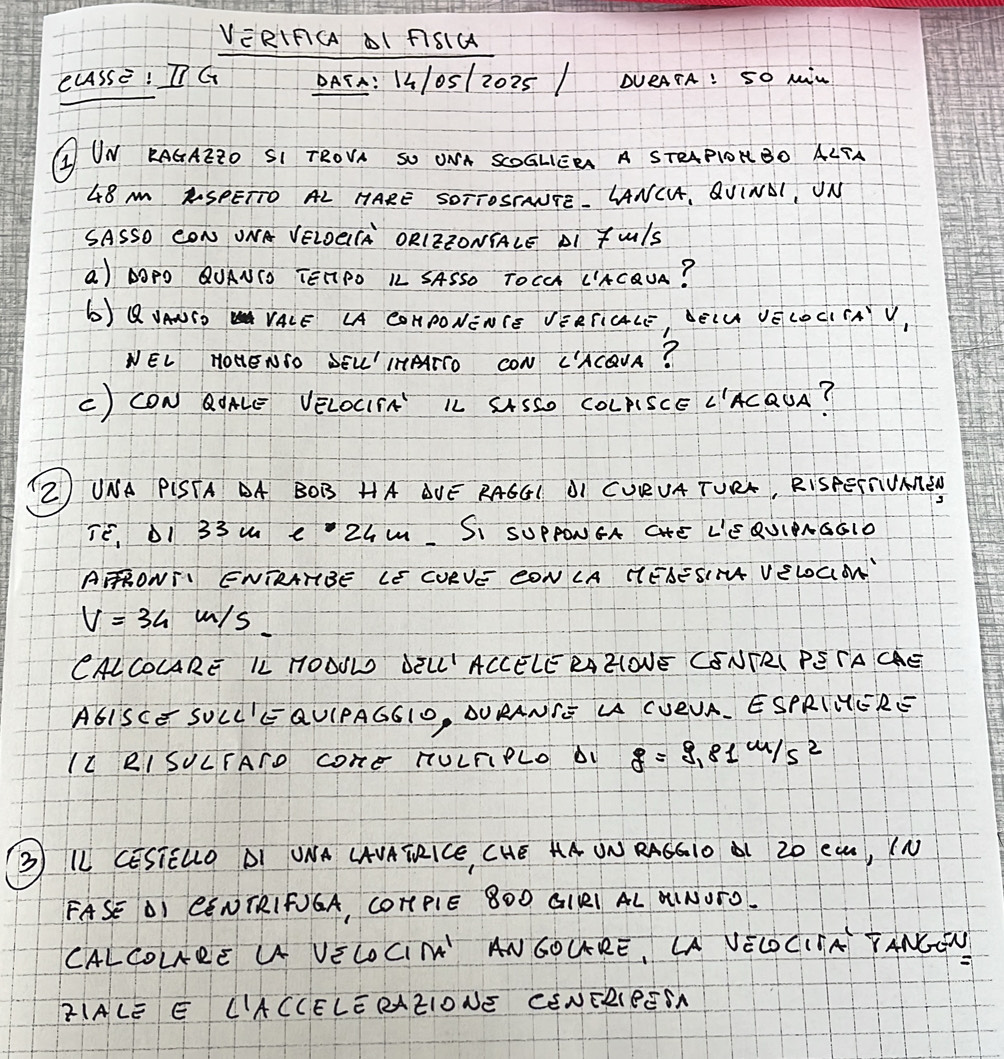 VERIFICA DI FISICA
CLASSE: II G DATA: 14/05/2025 / DURATA: 50 min
① UN RAGAZZO SI TROVA SU UNA SCOGLIERA A STRAPIOMBO ALTA
48 m RISPETTO AL MARE SOTTOSTANTE. LANCIA, QUINDI, UN
SASSO CON UNA VELOCITÀ ORIZZONTALE DI 7 m/s
a) DOPO QUANTO TEMPO IL SASSO TOCCA L'ACQUA?
b) QUANTO VALE LA COMPONENTE VERTICALE, DELLA VELOCITA' V,
NEL MOMENTO DELL'IMPATTO CON L'ACQUA?
c) CON QUALE VELOCITA' IL SASSO COLPISCE L'ACQUA?
② UNA PISTA DA BOB HA DUE RAGGI DI CURVATURA, RISPETTIVAMEN
TE, DI 33 m e 24 m. SI SUPPONGA CHE L'EQUIPAGGIO
AFFRONTI ENTRAMBE LE CURVE CON LA MEDESIMA VELOCITA'
V = 34 m/s.
CALCOLARE IL MODULO DELL'ACCELERAZIONE CENTRIPETA CHE
AGISCE SULL'EQUIPAGGIO, DURANTE LA CURVA. ESPRIMERE
IL RISULTATO COME MULTIPLO DI g = 9,81 m/s²
③ IL CESTELLO DI UNA LAVATRICE, CHE HA UN RAGGIO DI 20 cm, IN
FASE DI CENTRIFUGA, COMPIE 800 GIRI AL MINUTO.
CALCOLARE LA VELOCITA' ANGOLARE, LA VELOCITA' TANGEN=
ZIALE E L'ACCELERAZIONE CENTRIPETA